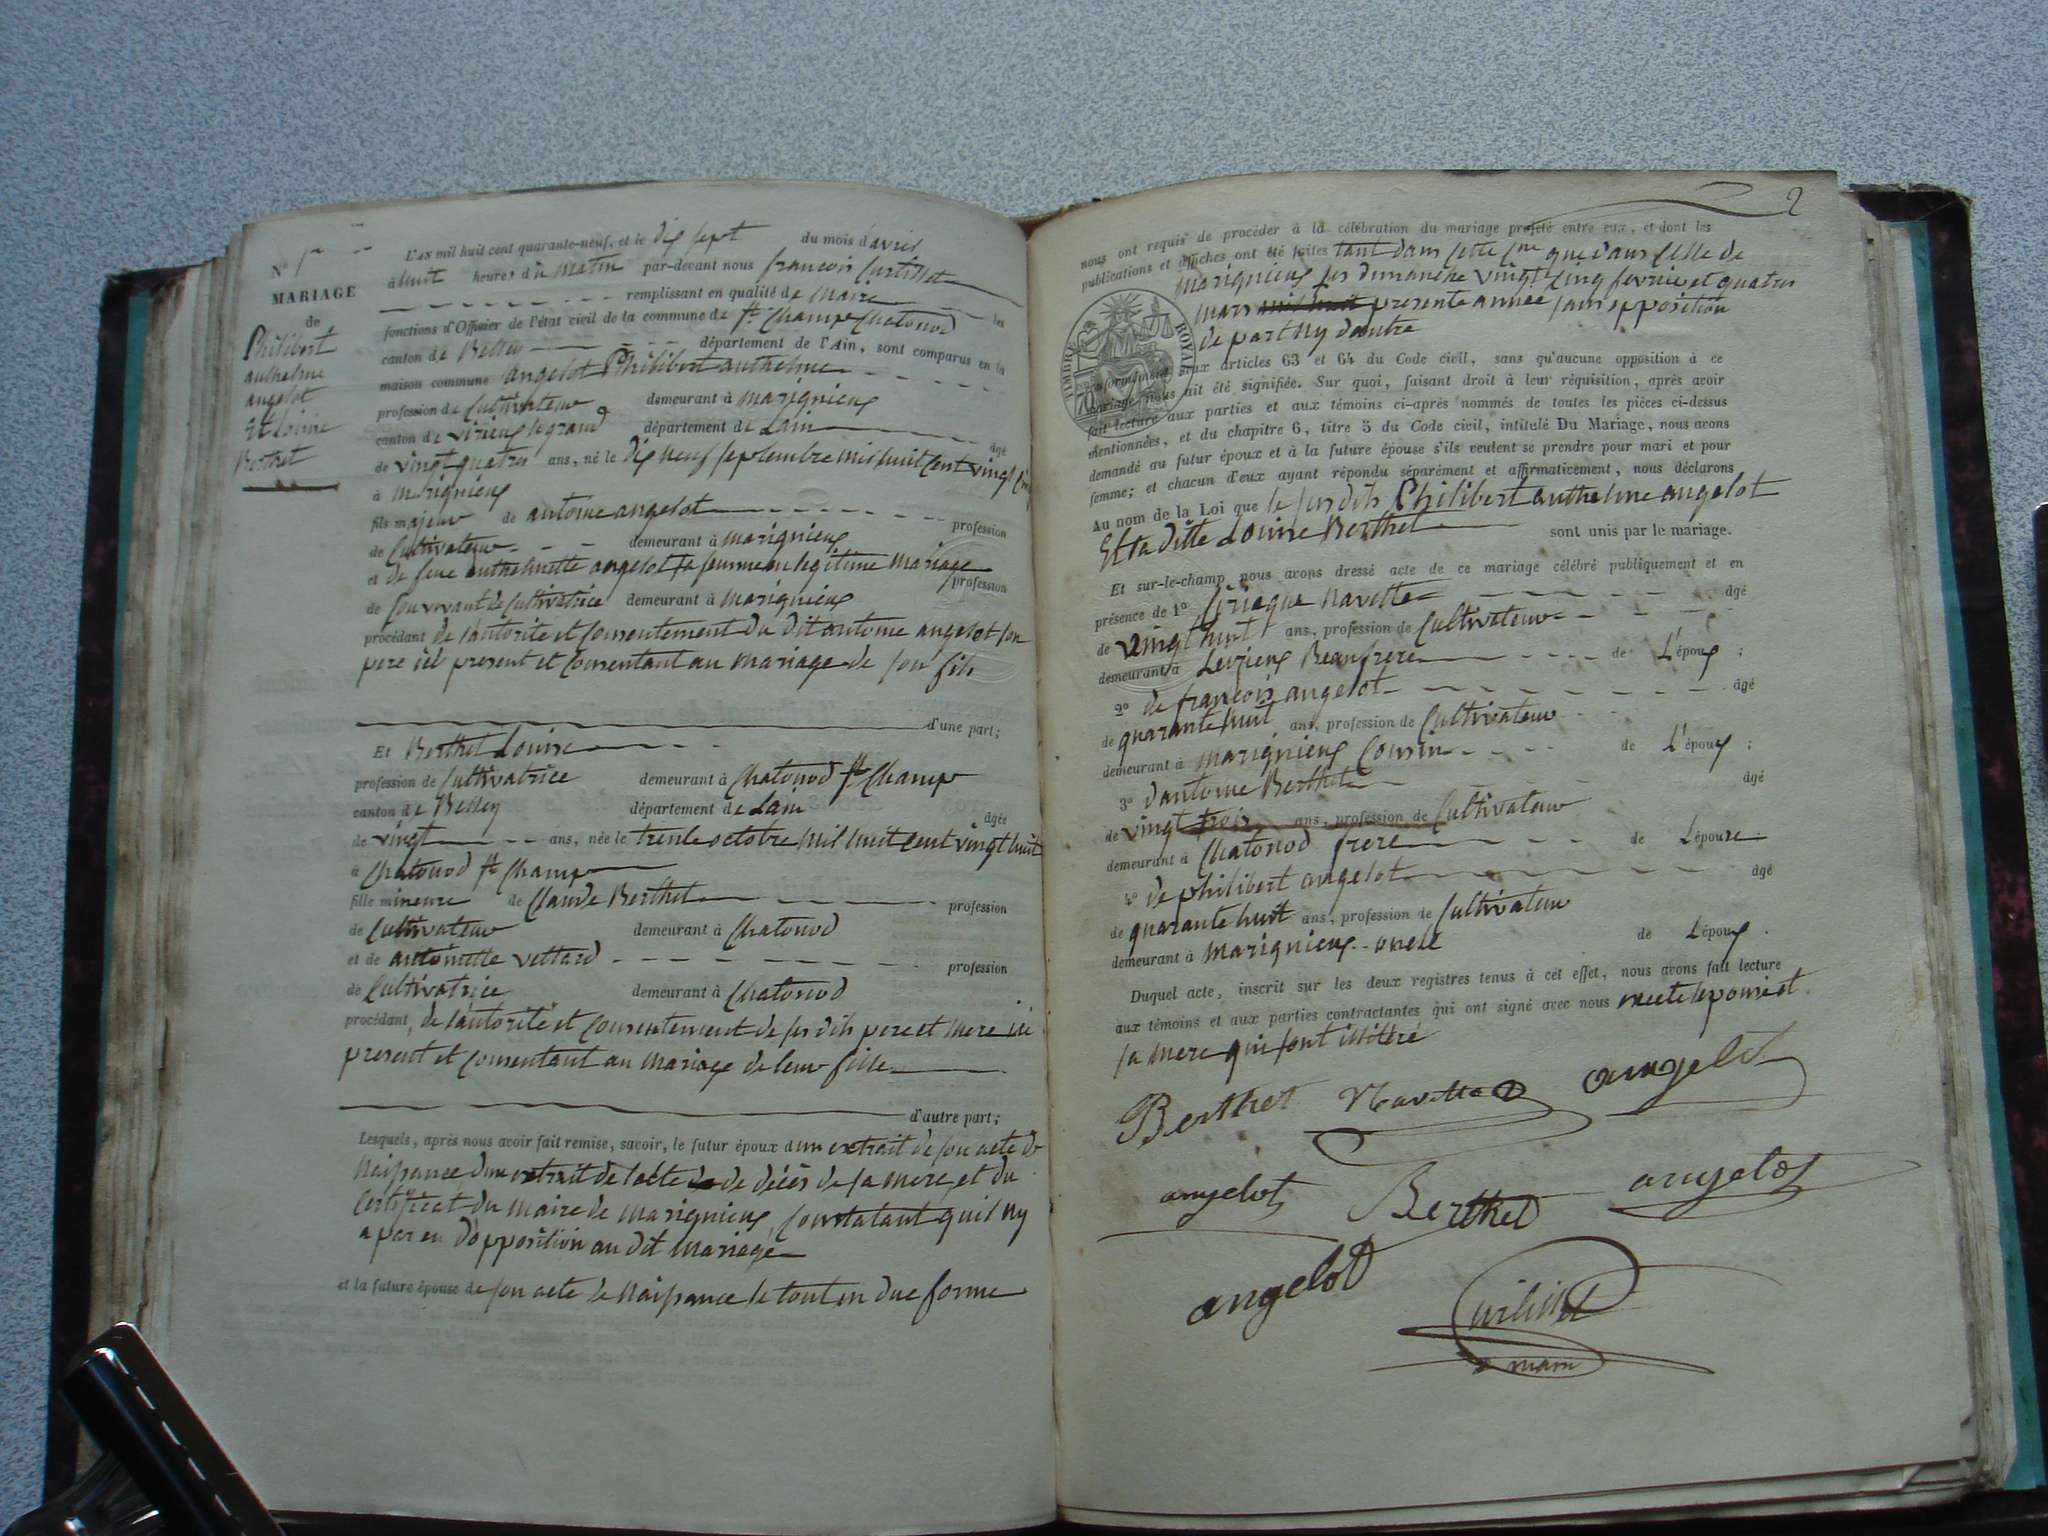 N° 1er
MARIAGE
de
Philibert
anthelme
angelot
Et Louise
Berthet
L'AN mil huit cent quarante-neuf, et le dix sept du mois d'avril
à huit heures du matin par-devant nous françois Curtillet
remplissant en qualité de Maire les
fonctions d'Officier de l'état civil de la commune de St Champ Chatonod
canton de Belley département de l'Ain, sont comparus en la
maison commune angelot Philibert anthelme
profession de Cultivateur demeurant à marignieux
canton de virieux legrand département de Lain âgé
de vingt quatre ans, né le dix neuf septembre mil huit Cent vingt
à Marignieux
fils majeur de antoine angelot profession
de Cultivateur demeurant à marignieux
et de feue anthelmette angelot sa femme en legitime mariage profession
de Son vivant de Cultivatrice demeurant à Marignieux
procédant de lautorité et Consentement du dit antoine angelot son
pere ici present et Consentant au mariage de son fils
d'une part;
Et Berthet Louise
profession de Cultivatrice demeurant à Chatonod St Champ
canton de Belley département de Lain âgée
de vingt ans, née le trente octobre mil huit cent vingt huit
à Chatonod St Champ
fille mineure de Claude Berthet profession
de Cultivateur demeurant à Chatonod
et de antoinette vettard profession
de Cultivatrice demeurant à Chatonod
procédant de lautorité et Consentement de ses dits pere et mere ici
present et Consentant au mariage de leur fille
d'autre part;
Lesquels, après nous avoir fait remise, savoir, le futur époux dun extrait de son acte de
Naissance dun extrait de lacte de décès de sa mere et du
Certificat du Maire de marignieux, Constatant quil ny
a pas eu dopposition au dit mariage
et la future épouse de son acte de Naissance le tout en due forme
2
nous ont requis de procéder à la célébration du mariage projeté entre eux, et dont les
publications et affiches ont été faites tant dans cette Cne que dans Celle de
Marignieux les dimanche vingt Cinq fevrier et quatre
mars presente année sans opposition
de part ny dautre
TIMBRE ROYAL
70
conformément aux articles 63 et 64 du Code civil, sans qu'aucune opposition à ce
mariage nous ait été signifiée. Sur quoi, faisant droit à leur réquisition, après avoir
fait lecture aux parties et aux témoins ci-après nommés de toutes les pièces ci-dessus
mentionnées, et du chapitre 6, titre 5 du Code civil, intitulé Du Mariage, nous avons
demandé au futur époux et à la future épouse s'ils veulent se prendre pour mari et pour
femme; et chacun d'eux ayant répondu séparément et affirmativement, nous déclarons
Au nom de la Loi que le susdits Philibert anthelme angelot
Et la ditte Louise Berthet sont unis par le mariage.
Et sur-le-champ nous avons dressé acte de ce mariage célébré publiquement et en
présence de 1° Navette âgé
de vingt huit ans, profession de Cultivateur
demeurant à Leyrieux Beaufrere de L'époux;
2° de françois angelot âgé
de quarante huit ans, profession de Cultivateur
demeurant à Marignieux Cousin de L'époux;
3° dantoine Berthet âgé
de vingt trois ans, profession de Cultivateur
demeurant à Chatonod frere de L'épouse
4° de philibert angelot âgé
de quarante huit ans, profession de Cultivateur
demeurant à Marignieux oncle de L'époux.
Duquel acte, inscrit sur les deux registres tenus à cet effet, nous avons fait lecture
aux témoins et aux parties contractantes qui ont signé avec nous lepouse et
sa mere qui sont illitéré
Berthet Navette angelot
angelot Berthet angelot
angelot Curtillet
maire